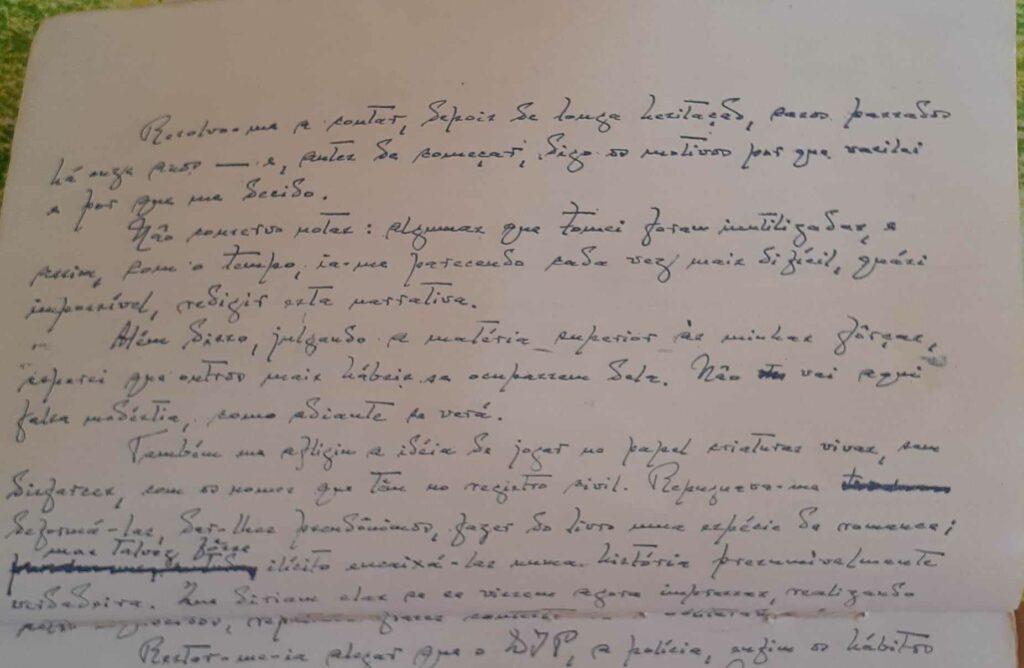 Resolvo-me a contar, depois de longa hesitação, casos passados
há onze anos — e, antes de começar, digo os motivos por que vacilei
e por que me decido.
Não conservo notas: algumas que tomei foram inutilizadas, e
assim, com o tempo, ia-me parecendo cada vez mais difícil, quási
impossível, redigir esta narrativa.
Além disso, julgando a matéria superior às minhas fôrças,
esperei que outros mais hábeis se ocupassem dela. Não vai aqui
falsa modéstia, como adiante se verá.
Também me afligiu a idéia de jogar no papel criaturas vivas, sem
disfarces, com os nomes que têm no registro civil. Repugnava-me
deformá-las, dar-lhes pseudônimos, fazer do livro uma espécie de romance;
mas talvez fôsse
ilícito encaixá-las numa história presumivelmente
verdadeira. Que diriam elas se se vissem agora impressas, realizando
frases
Restar-me-ia alegar que o DIP, a polícia, enfim os hábitos